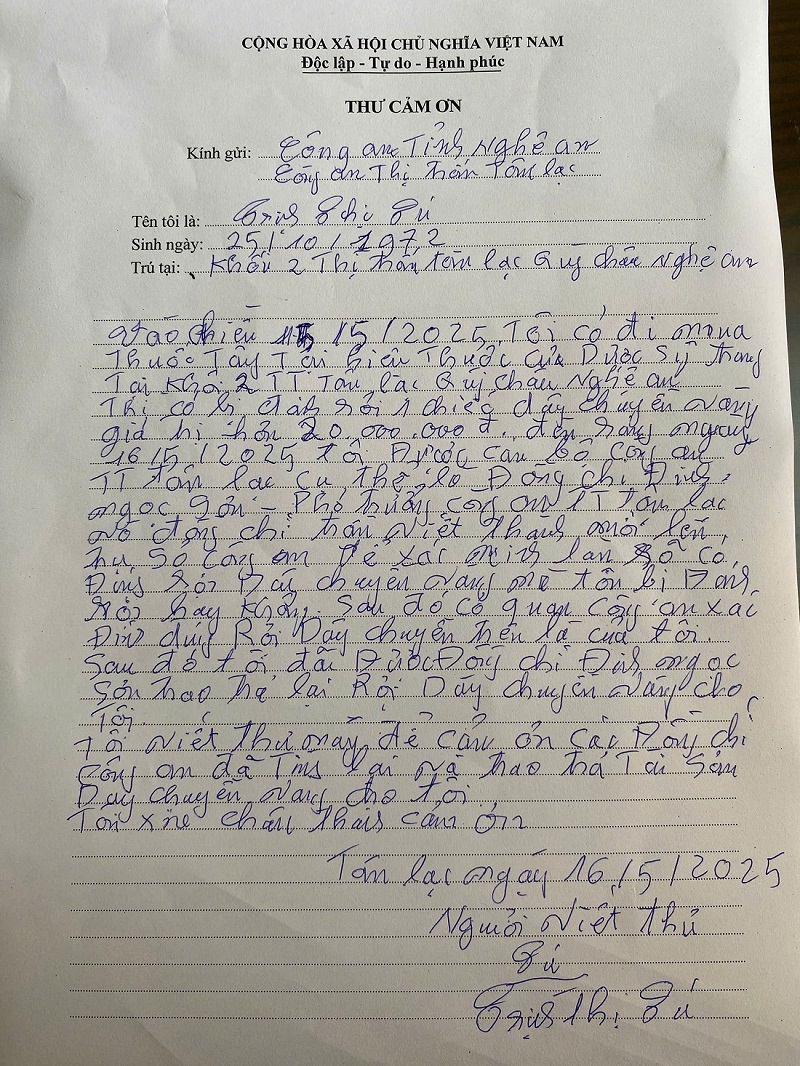 CỘNG HÒA XÃ HỘI CHỦ NGHĨA VIỆT NAM
Độc lập - Tự do - Hạnh phúc
THƯ CẢM ƠN
Kính gửi: Công an Tỉnh Nghệ an
Công an Thị trấn Tân lạc
Tên tôi là: Trịnh Thị Tú
Sinh ngày: 25/10/1972
Trú tại: Khối 2 Thị trấn tân lạc Quỳ châu Nghệ an
Vào chiều 15/5/2025 Tôi có đi mua
Thuốc Tây Tại hiệu Thuốc của Dược Sỹ
Tại Khối 2 TT Tân lạc Quỳ châu Nghệ an
Thì có bị đánh rơi 1 chiếc dây chuyền vàng
giá trị hơn 20.000.000đ. đến sáng ngày
16/5/2025 tôi Được cán bộ công an
TT tân lạc cụ thể là Đồng chí Đinh
ngọc Sơn - Phó trưởng công an TT tân lạc
và đồng chí trần viết Thanh mời lên
trụ Sở công an Để xác minh có
Đúng Sợi Dây chuyền vàng mà tôi bị Đánh
Rơi hay Không. Sau đó cơ quan công an xác
Định đúng Rồi Dây chuyền trên là của tôi.
Sau đó tôi đã Được Đồng chí Đinh ngọc
Sơn trao trả lại Sợi Dây chuyền vàng cho
Tôi.
Tôi viết thư này để cảm ơn các Đồng chí
công an đã Tìm lại và trao trả Tài Sản
Dây chuyền vàng cho tôi
Tôi xin chân thành cảm ơn
Tân lạc ngày 16/5/2025
Người viết thư
Tú
Trịnh Thị Tú